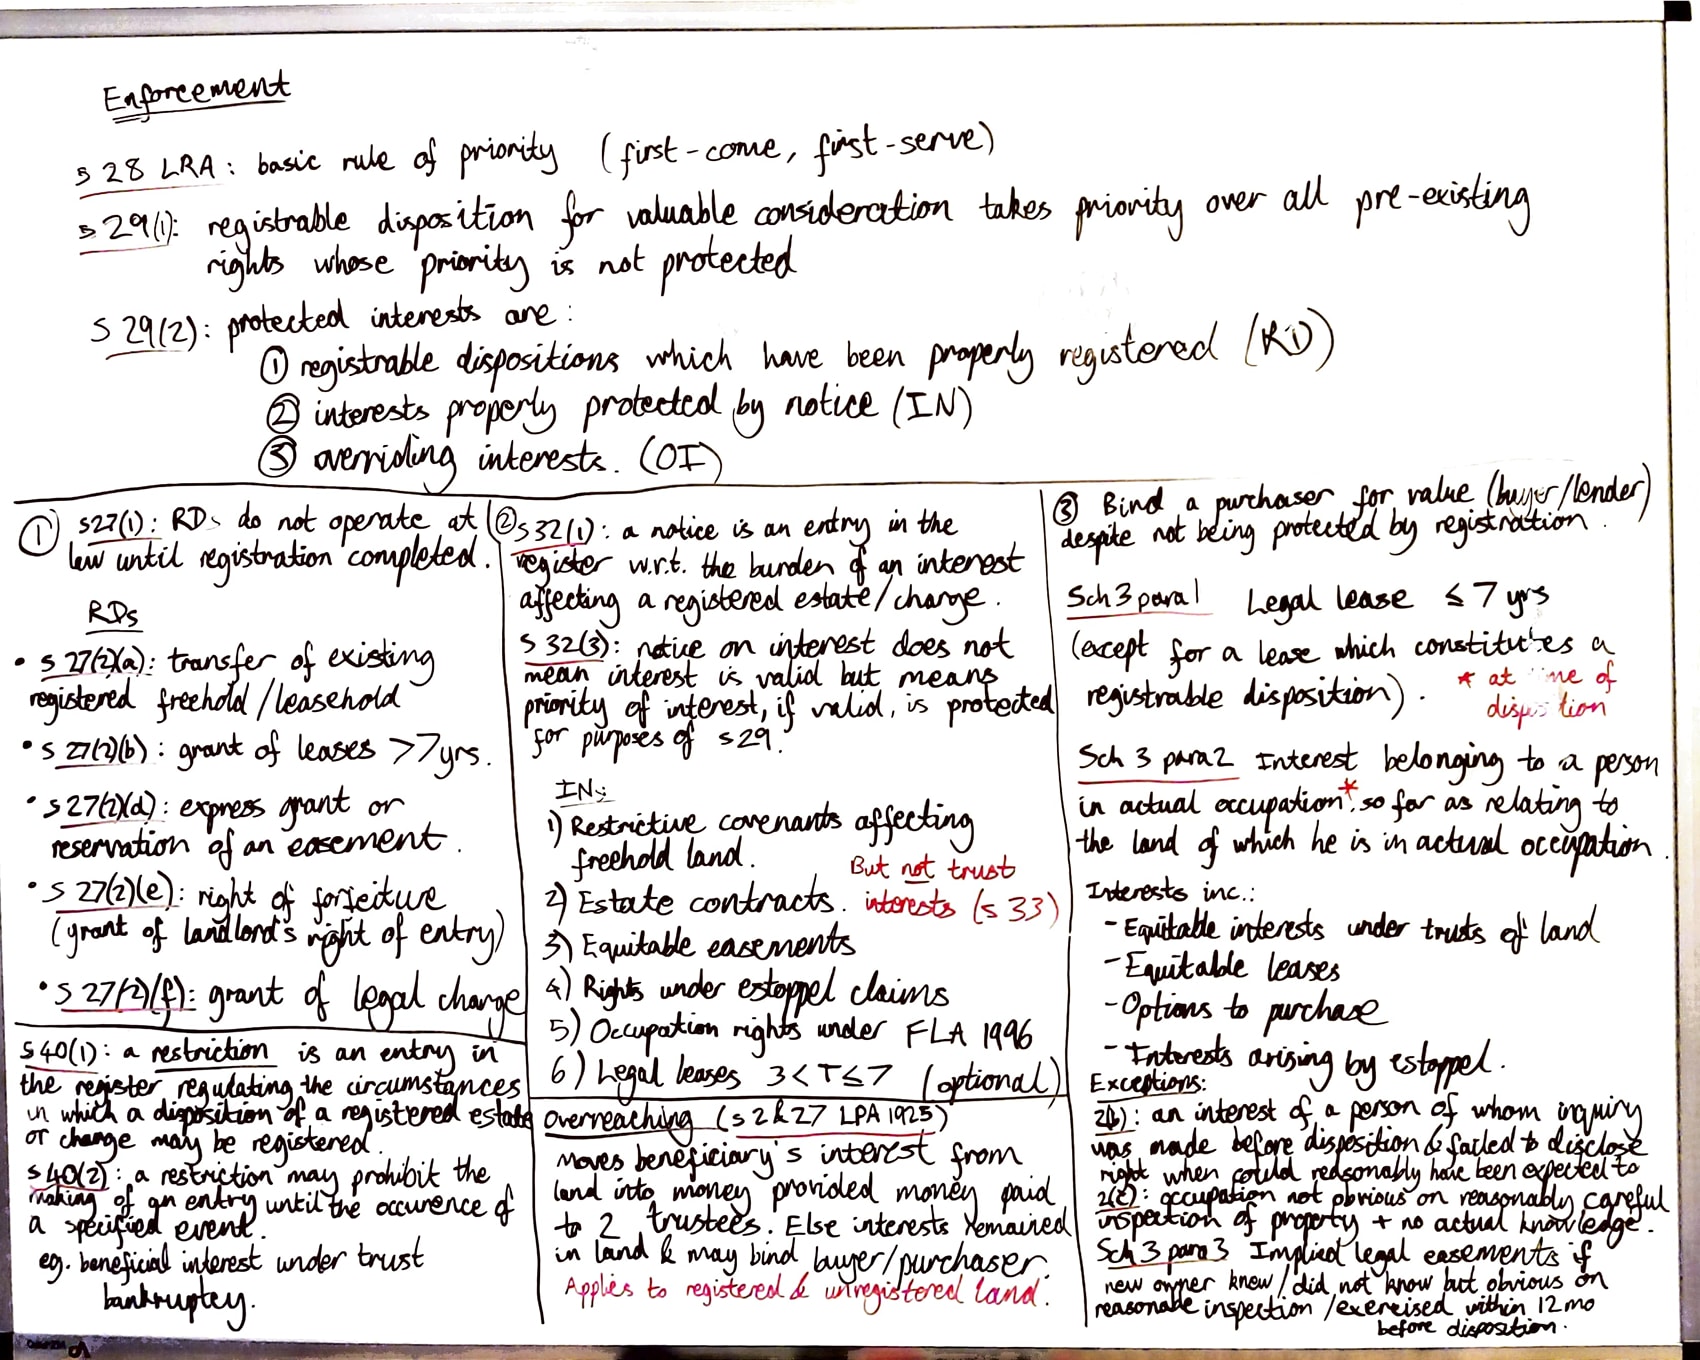 Enforcement
s 28 LRA : basic rule of priority (first-come, first-serve)
s 29(1): registrable disposition for valuable consideration takes priority over all pre-existing
rights whose priority is not protected
s 29(2): protected interests are :
① registrable dispositions which have been properly registered (RD)
② interests properly protected by notice (IN)
③ overriding interests. (OI)
① s27(1): RDs do not operate at
law until registration completed.
RDs
• s 27(2)(a): transfer of existing
registered freehold /leasehold
• s 27(2)(b): grant of leases >7yrs.
• s 27(2)(d): express grant or
reservation of an easement.
• s 27(2)(e): right of forfeiture
(grant of landlord's right of entry)
• s 27(2)(f): grant of legal charge
s 40(1): a restriction is an entry in
the register regulating the circumstances
in which a disposition of a registered estate
or charge may be registered.
s 40(2): a restriction may prohibit the
making of an entry until the occurence of
a specified event.
eg. beneficial interest under trust
bankruptcy.
② s 32(1): a notice is an entry in the
register w.r.t. the burden of an interest
affecting a registered estate/charge.
s 32(3): notice on interest does not
mean interest is valid but means
priority of interest, if valid, is protected
for purposes of s29.
INs
1) Restrictive covenants affecting
freehold land.
But not trust
2) Estate contracts. interests (s 33)
3) Equitable easements
4) Rights under estoppel claims
5) Occupation rights under FLA 1996
6) Legal leases 3<T≤7 (optional)
Overreaching (s 2 & 27 LPA 1925)
moves beneficiary's interest from
land into money provided money paid
to 2 trustees. Else interests remained
in land & may bind buyer/purchaser.
Applies to registered & unregistered land.
③ Bind a purchaser for value (buyer/lender)
despite not being protected by registration.
Sch 3 para 1 Legal lease ≤ 7 yrs
(except for a lease which constitutes a
registrable disposition). * at me of
dispo tion
Sch 3 para 2 Interest belonging to a person
in actual occupation*, so far as relating to
the land of which he is in actual occupation.
Interests inc.:
- Equitable interests under trusts of land
- Equitable leases
- Options to purchase
- Interests arising by estoppel.
Exceptions:
2(b): an interest of a person of whom inquiry
was made before disposition & failed to disclose
right when could reasonably have been expected to
2(c): occupation not obvious on reasonably careful
inspection of property + no actual knowledge.
Sch 3 para 3 Implied legal easements if
new owner knew / did not know but obvious on
reasonable inspection /exercised within 12 mo
before disposition.